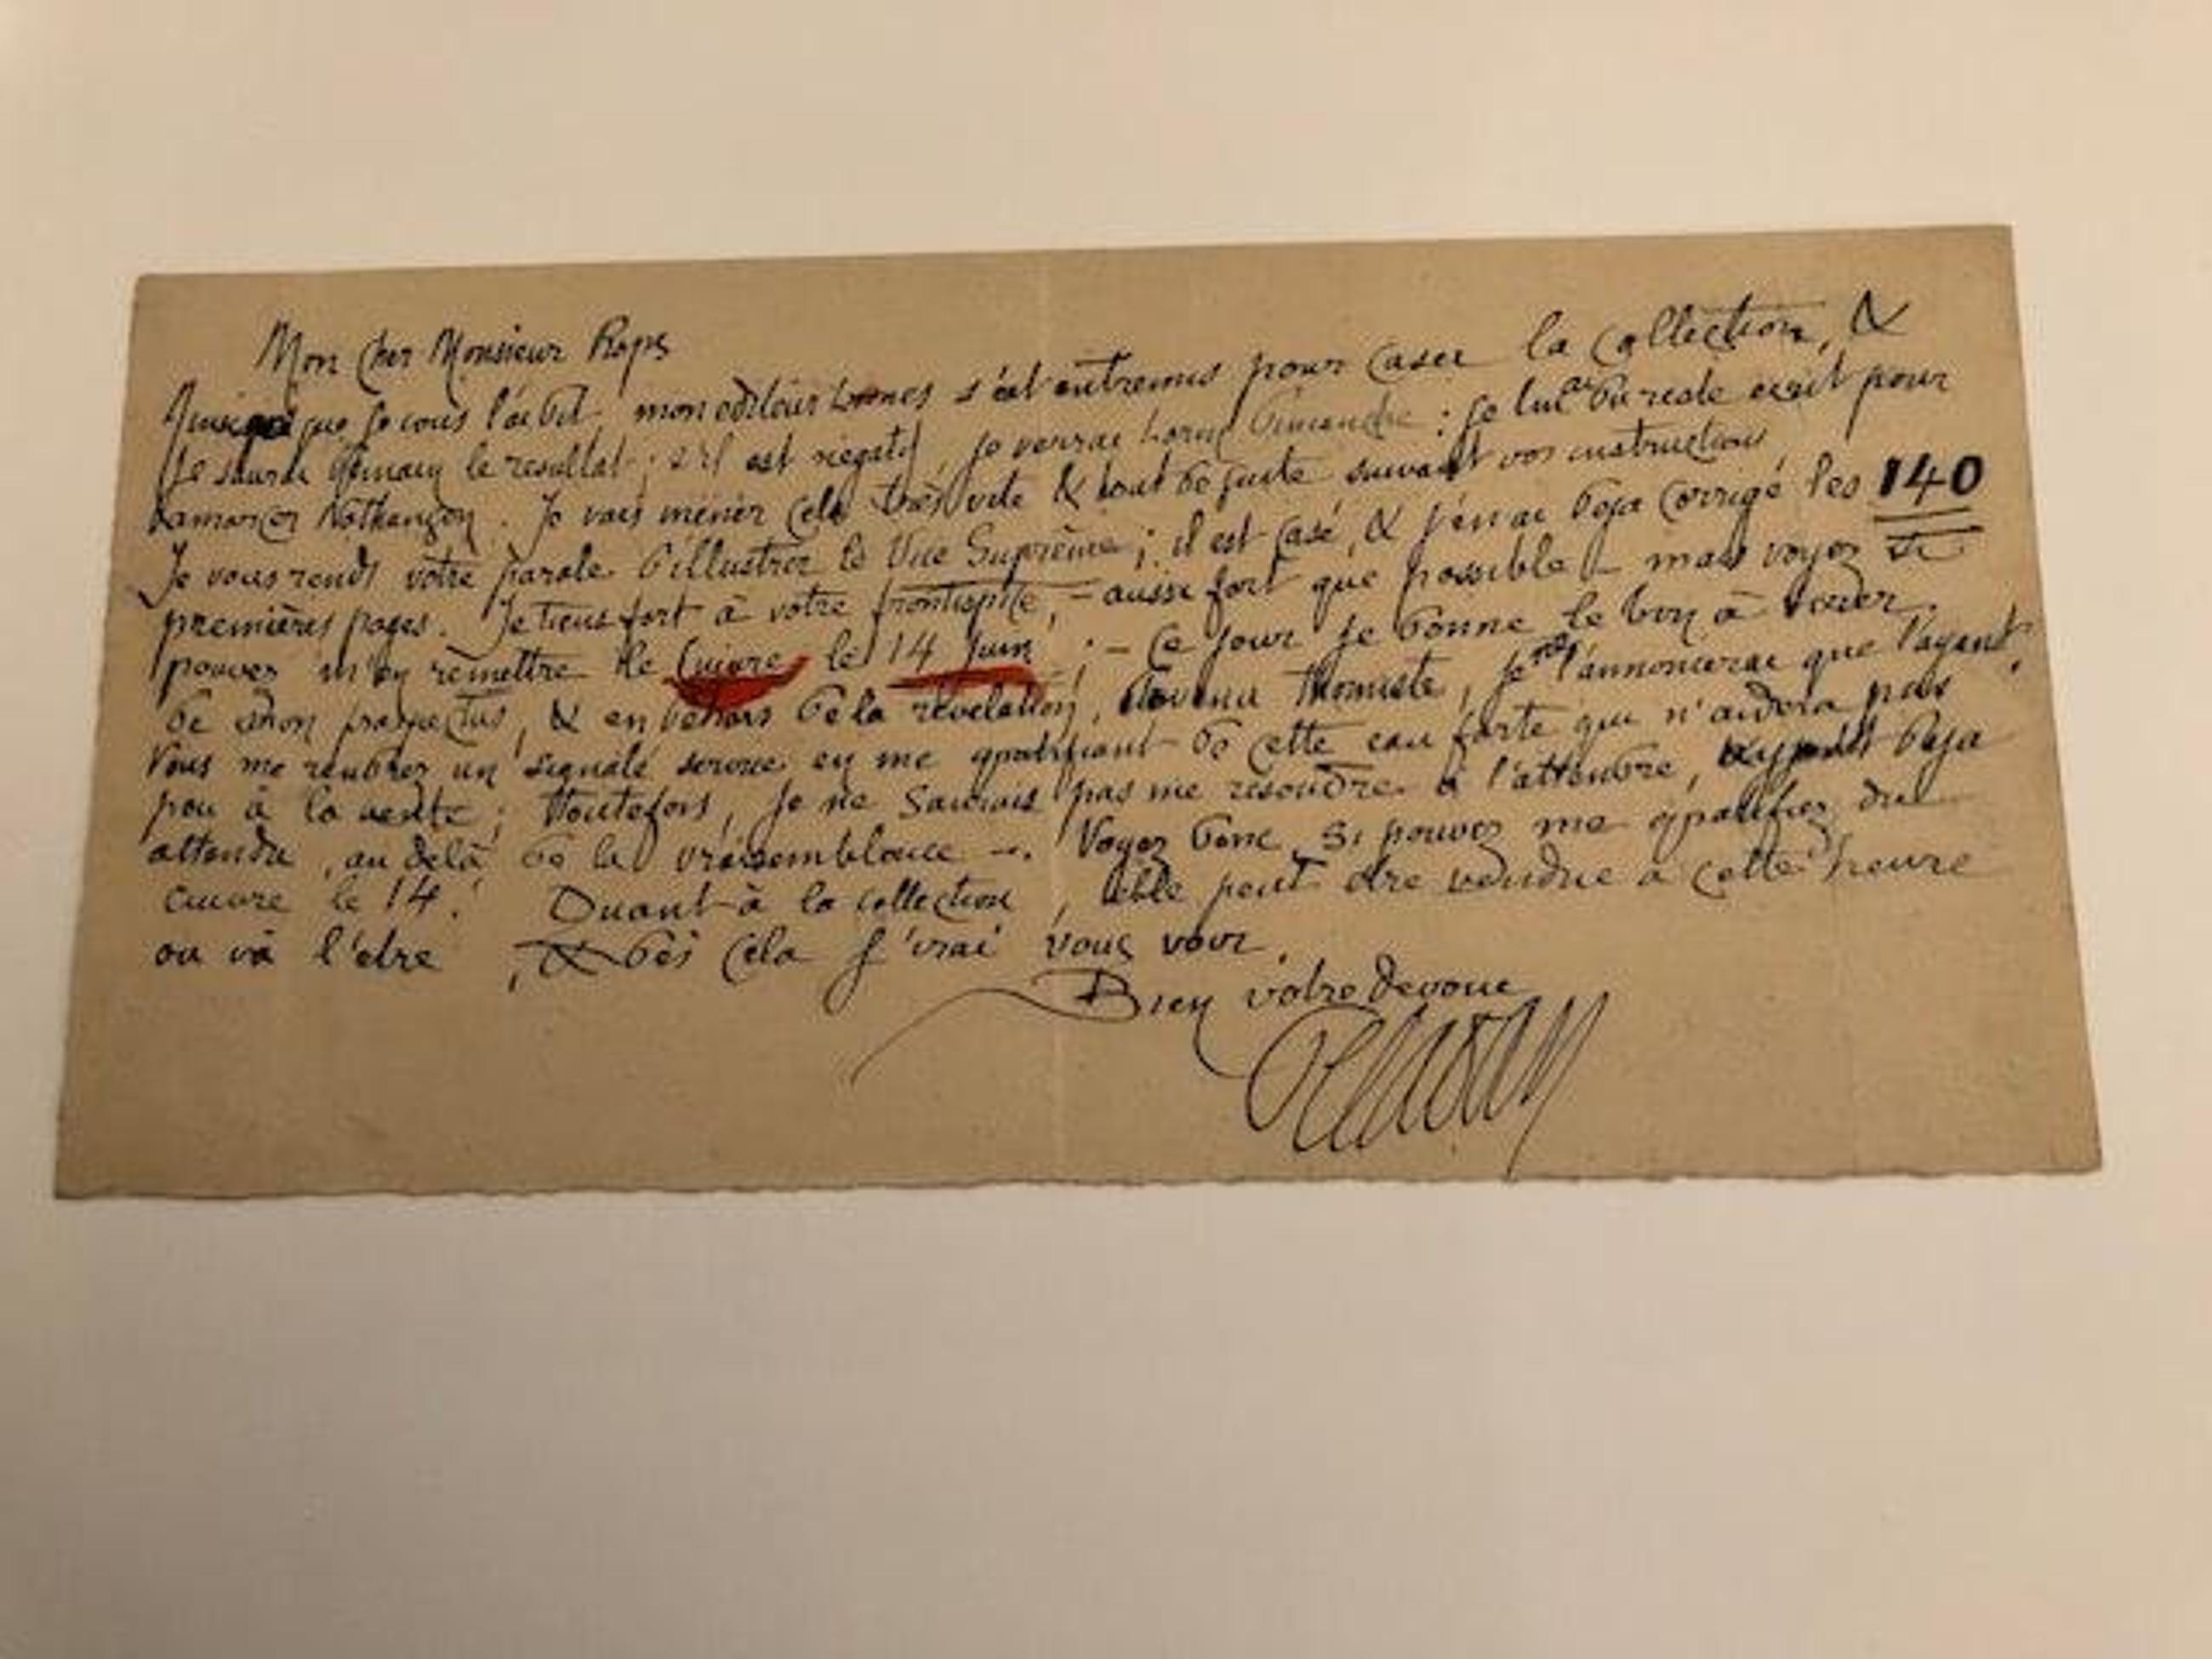 Mon Cher Monsieur Rops
que je vous l'ai dit, mon editeur s'est entremis pour caser la collection, &
Je saurai demain le resultat ; s'il est négatif, je verrai dimanche : je lui ai du reste écrit pour
amorcer . Je vais mener cela très vite & tout de suite suivant vos instructions
Je vous rends votre parole d'illustrer le Vice Suprême ; il est casé, & j'en ai deja corrigé les 140
premières pages. Je tiens fort à votre frontispice, – aussi fort que possible – mais voyez si
pouvez m'en remettre le Cuivre le 14 Juin ; – Ce jour je donne le bon à
de mon prospectus, & en dehors de la révélation, devenu thomiste, je ne l'annoncerai que l'ayant.
Vous me rendrez un signalé service en me gratifiant de cette eau forte qui n'aidera pas
peu à la vente ; toutefois, je ne saurais pas me résoudre à l'attendre, deja
attendu, au delà de la vraisemblance –. Voyez donc si pouvez me gratifier du
cuivre le 14. Quant à la collection, elle peut être vendue à cette heure
ou va l'etre, & dès cela j'irai vous voir.
Bien votre devoué
Peladan